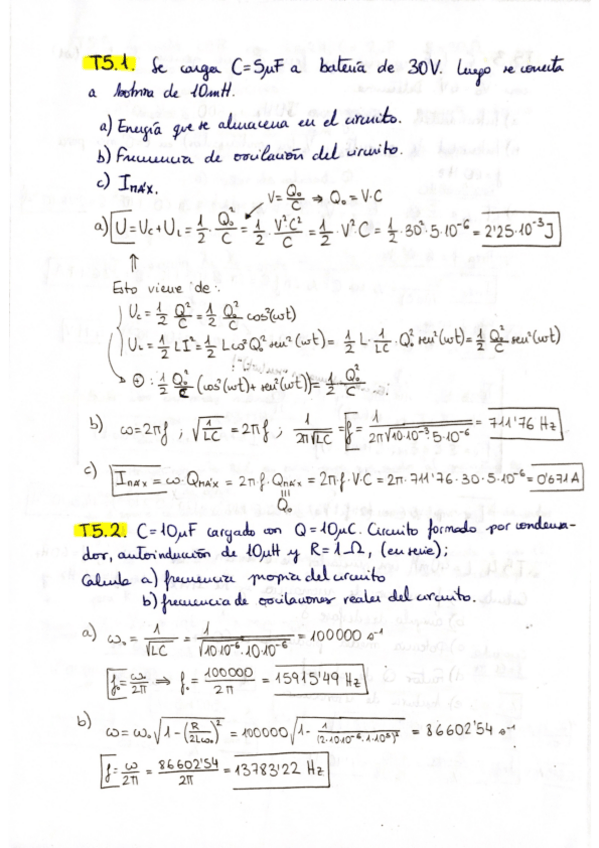 T5.1. Se carga C=5μF a batería de 30V. Luego se conecta
a bobina de 10mH.
a) Energía que se almacena en el circuito.
b) Frecuencia de oscilación del circuito.
c) Imáx.
V = Q₀/C ⇒ Q₀ = V·C
a) U = Uc + UL = 1/2 · Q₀²/C = 1/2 · V²C²/C = 1/2 · V²·C = 1/2 · 30² · 5·10⁻⁶ = 2'25·10⁻³ J
Esto viene de:
Uc = 1/2 Q²/C = 1/2 Q₀²/C cos²(ωt)
UL = 1/2 LI² = 1/2 Lω² Q₀² sen²(ωt) = 1/2 L · 1/LC · Q₀² sen²(ωt) = 1/2 Q₀²/C sen²(ωt)
⊕ : 1/2 Q₀²/C (cos²(ωt) + sen²(ωt)) = 1/2 Q₀²/C
b) ω = 2πf ; √(1/LC) = 2πf ; 1/(2π√LC) = f = 1/(2π√(10·10⁻³·5·10⁻⁶)) = 711'76 Hz
c) Imáx = ω·Qmáx = 2πf·Qmáx = 2π·f·V·C = 2π·711'76·30·5·10⁻⁶ = 0'671 A
Q₀
T5.2. C=10μF cargado con Q=10μC. Circuito formado por condensa-
dor, autoinducción de 10μH y R=1Ω, (en serie);
Calcula a) frecuencia propia del circuito
b) frecuencia de oscilaciones reales del circuito.
a) ω₀ = 1/√LC = 1/√(10·10⁻⁶·10·10⁻⁶) = 100000 s⁻¹
f₀ = ω/2π ⇒ f₀ = 100000/2π = 15915'49 Hz
b) ω = ω₀ √(1-(R/2Lω₀)²) = 100000 √(1- 1/(2·10·10⁻⁶·1·10⁵)²) = 86602'54 s⁻¹
f = ω/2π = 86602'54/2π = 13783'22 Hz